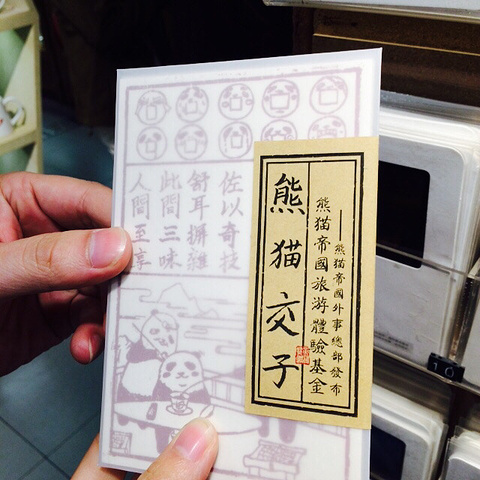 ——熊猫帝國外事總部發布
熊猫帝國旅游體驗基金
熊猫交子
佐以奇技
舒耳摒雜
此間三味
人間至享